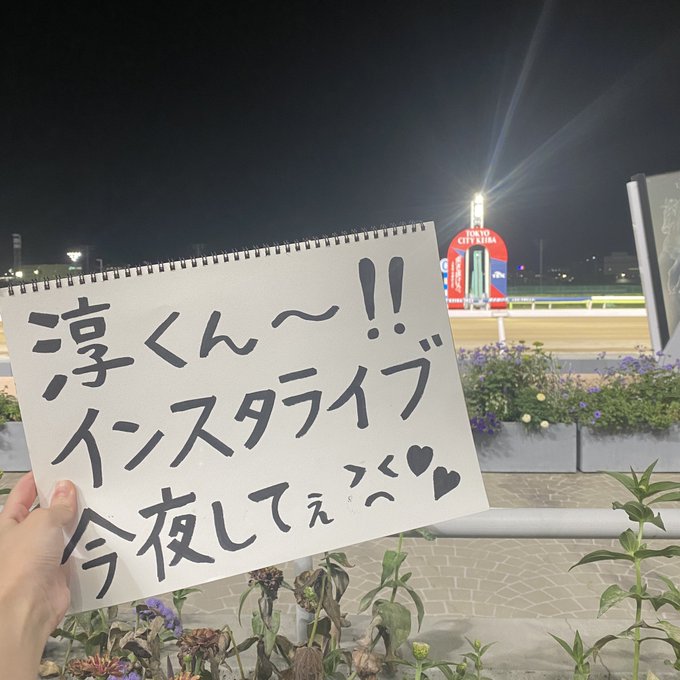 淳くん〜!!
インスタライブ
今夜してぇ >く へ ♥♥
TOKYO
CITY KEIBA